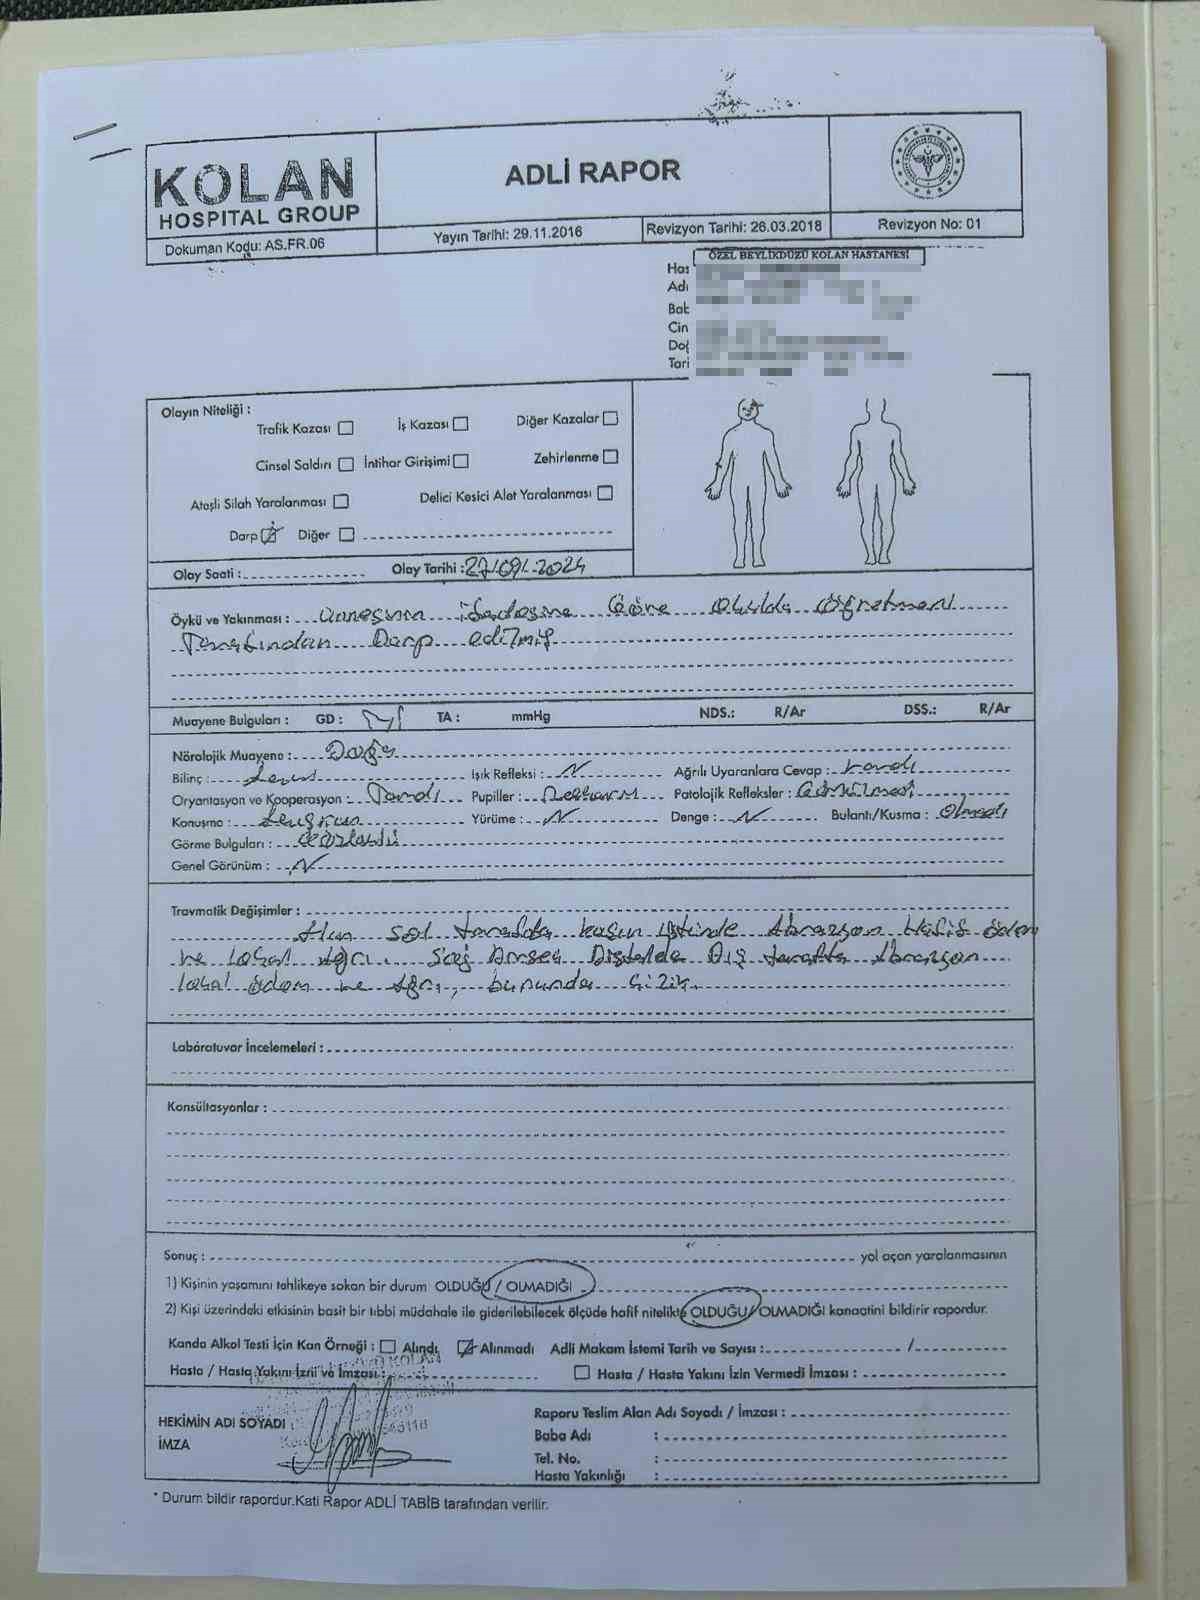 KOLAN
HOSPITAL GROUP
Dokuman Kodu: AS.FR.06
ADLİ RAPOR
Yayın Tarihi: 29.11.2016
Revizyon Tarihi: 26.03.2018
Revizyon No: 01
ÖZEL BEYLİKDÜZÜ KOLAN HASTANESİ
Has
Adı
Bab
Cin
Doğ
Tari
Olayın Niteliği :
Trafik Kazası İş Kazası Diğer Kazalar
Cinsel Saldırı İntihar Girişimi Zehirlenme
Ateşli Silah Yaralanması Delici Kesici Alet Yaralanması
Darp Diğer
Olay Saati : Olay Tarihi : 27/09/2024
Öykü ve Yakınması : annesinin ifadesine Göre okulda öğretmeni
Tarafından Darp edilmiş
Muayene Bulguları : GD : TA : mmHg NDS.: R/Ar DSS.: R/Ar
Nörolojik Muayene : Doğal
Bilinç : Işık Refleksi : N Ağrılı Uyaranlara Cevap :
Oryantasyon ve Kooperasyon : Pupiller : Patolojik Refleksler :
Konuşma : Yürüme : N Denge : N Bulantı/Kusma : olmadı
Görme Bulguları :
Genel Görünüm : N
Travmatik Değişimler :
Alın sol tarafda kaşın üstünde Abrazyon Hafif ödem
ve lokal ağrı. Sağ Dirsek Distalde Dış tarafta Abrazyon
lokal ödem ve Ağrı, çizik.
Labaratuvar İncelemeleri :
Konsültasyonlar :
Sonuç : yol açan yaralanmasının
1) Kişinin yaşamını tehlikeye sokan bir durum OLDUĞU / OLMADIĞI
2) Kişi üzerindeki etkisinin basit bir tıbbi müdahale ile giderilebilecek ölçüde hafif nitelikte OLDUĞU / OLMADIĞI kanaatini bildirir rapordur.
Kanda Alkol Testi İçin Kan Örneği : Alındı Alınmadı Adli Makam İstemi Tarih ve Sayısı : /
Hasta / Hasta Yakını İzni ve İmzası : Hasta / Hasta Yakını İzin Vermedi İmzası :
HEKİMİN ADI SOYADI :
İMZA
Raporu Teslim Alan Adı Soyadı / İmzası :
Baba Adı :
Tel. No. :
Hasta Yakınlığı :
* Durum bildir rapordur.Kati Rapor ADLİ TABİB tarafından verilir.